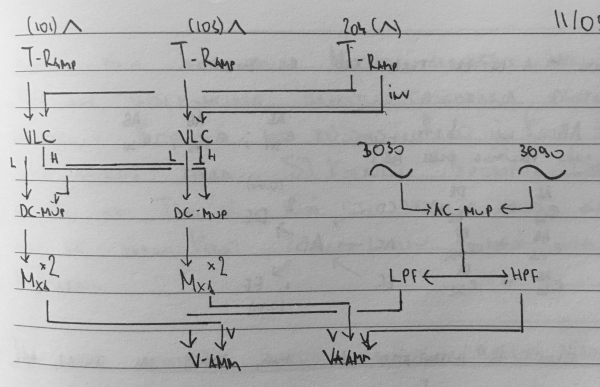 (101) (103) 204 (Λ) 11/0
T-RAMP T-RAMP T-RAMP
INV
VLC VLC
L H L H 3030 3090
DC-MUP DC-MUP AC-MUP
Mx4 x2 Mx4 x2 LPF HPF
V V
V-AMM VAAMM